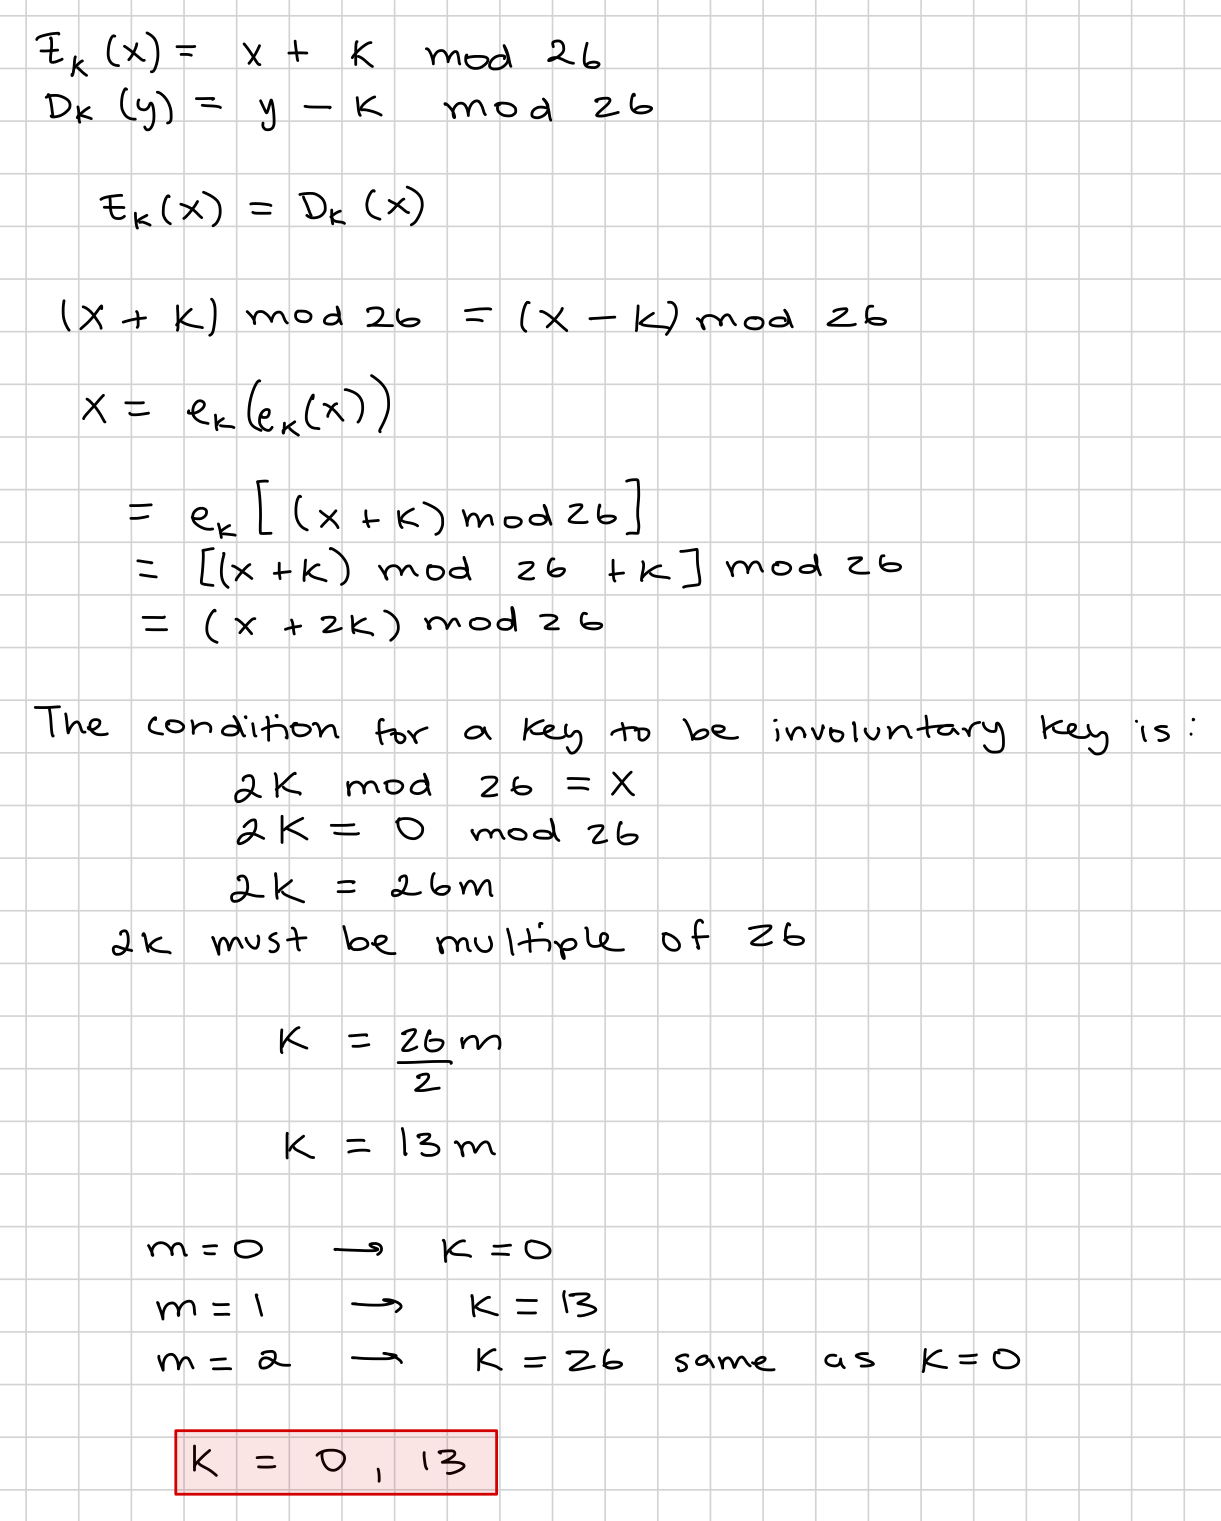 E_k (x) = x + k mod 26
D_k (y) = y - k mod 26
E_k (x) = D_k (x)
(x + k) mod 26 = (x - k) mod 26
x = e_k (e_k (x))
= e_k [(x + k) mod 26]
= [(x + k) mod 26 + k] mod 26
= (x + 2k) mod 26
The condition for a key to be involuntary key is:
2k mod 26 = x
2k = 0 mod 26
2k = 26m
2k must be multiple of 26
k = 26/2 m
k = 13m
m = 0 → k = 0
m = 1 → k = 13
m = 2 → k = 26 same as k = 0
k = 0, 13